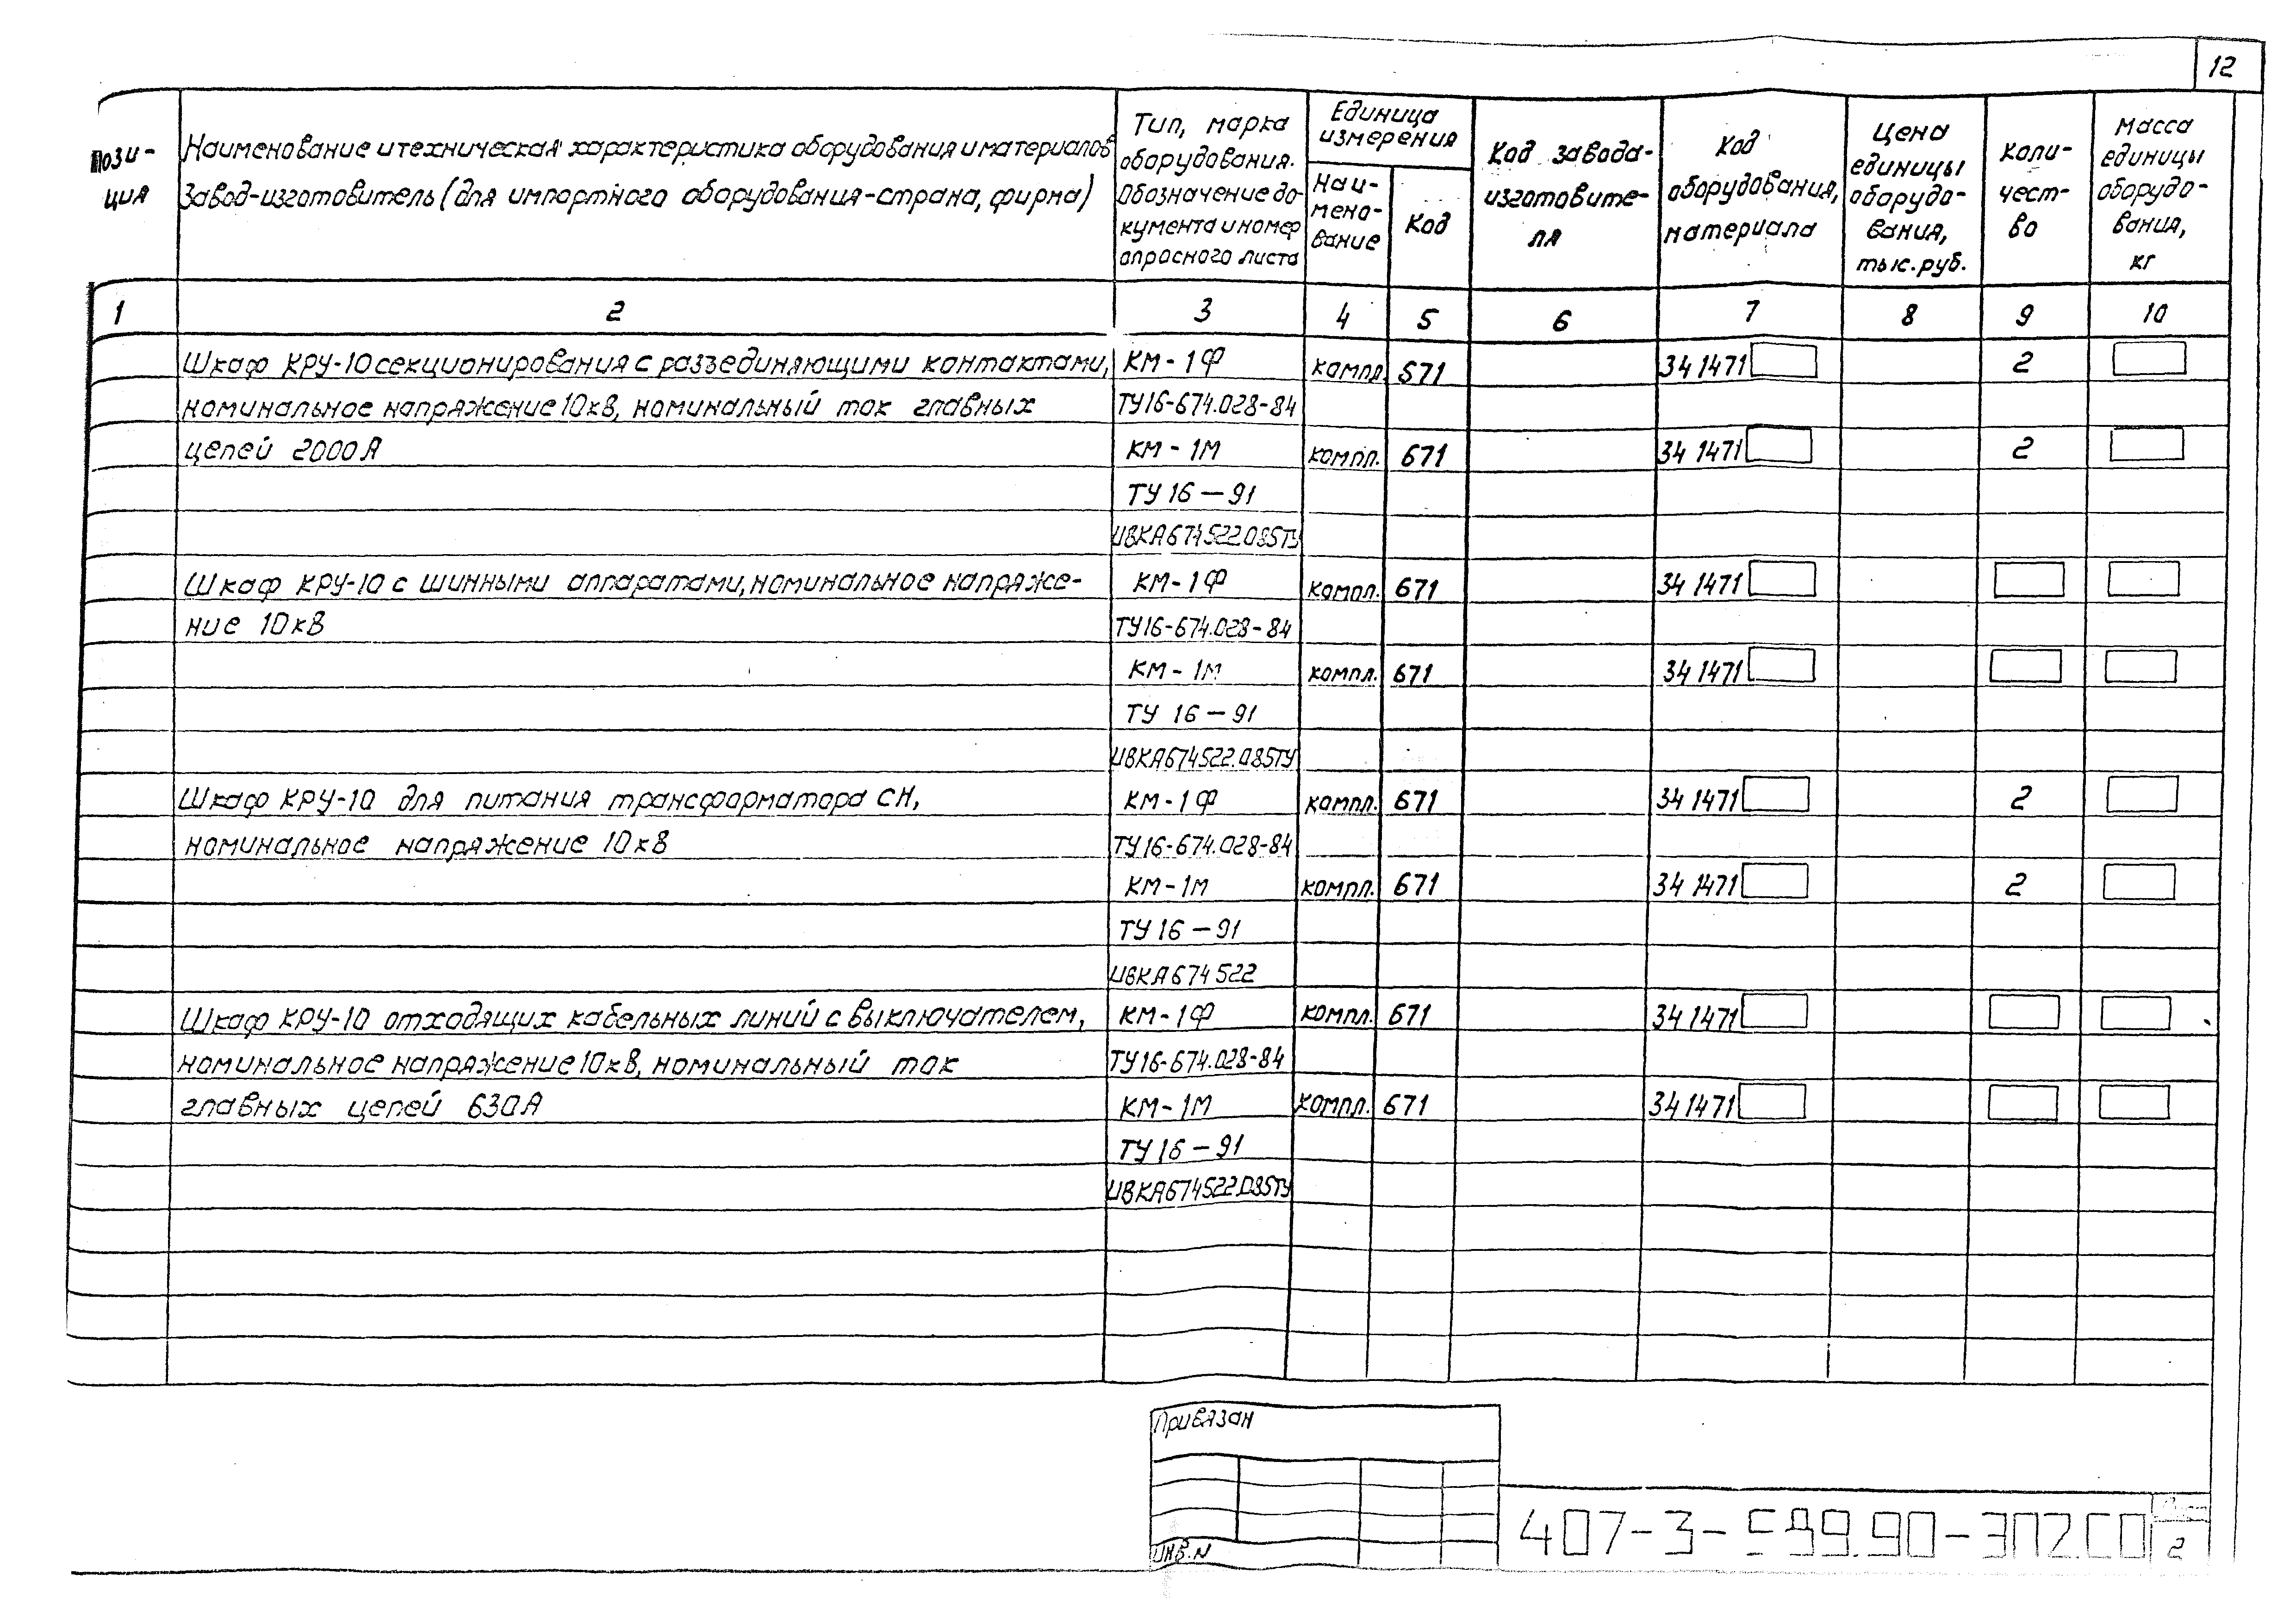 12
Пози-
ция
Наименование и техническая характеристика оборудования и материалов
Завод-изготовитель (для импортного оборудования-страна, фирма)
Тип, марка
оборудования.
Обозначение до-
кумента и номер
опросного листа
Единица
измерения
Наи-
мено-
вание
Код
Код завода-
изготовите-
ля
Код
оборудования,
материала
Цена
единицы
оборудо-
вания,
тыс.руб.
Коли-
чест-
во
Масса
единицы
оборудо-
вания,
кг
1 2 3 4 5 6 7 8 9 10
Шкаф КРУ-10 секционирования с разъединяющими контактами, КМ-1Ф компл. 671 34 1471 2
номинальное напряжение 10кВ, номинальный ток главных ТУ16-674.028-84
цепей 2000А КМ-1М компл. 671 34 1471 2
ТУ 16-91
ИВКА674522.085ТУ
Шкаф КРУ-10 с шинными аппаратами, номинальное напряже- КМ-1Ф компл. 671 34 1471
ние 10кВ ТУ16-674.028-84
КМ-1М компл. 671 34 1471
ТУ 16-91
ИВКА674522.085ТУ
Шкаф КРУ-10 для питания трансформатора СН, КМ-1Ф компл. 671 34 1471 2
номинальное напряжение 10кВ ТУ16-674.028-84
КМ-1М компл. 671 34 1471 2
ТУ 16-91
ИВКА674522
Шкаф КРУ-10 отходящих кабельных линий с выключателем, КМ-1Ф компл. 671 34 1471
номинальное напряжение 10кВ, номинальный ток ТУ16-674.028-84
главных цепей 630А КМ-1М компл. 671 34 1471
ТУ 16-91
ИВКА674522.085ТУ
Привязан
Инв.N
407-3-599.90-ЭП2.СО
Лист
2